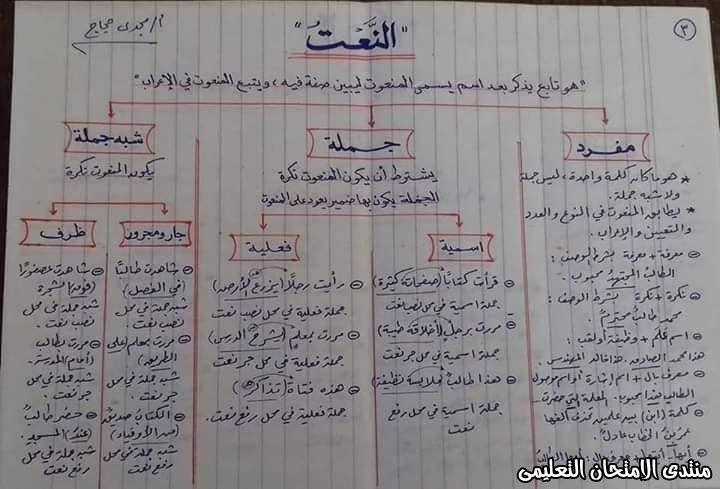 ٣
أ/ مجدى حجاج
"النَّعْتُ"
"هو تابع يذكر بعد اسم يسمى المنعوت ليبين صفة فيه، ويتبع المنعوت في الإعراب"
مفرد
* هو ما كان كلمة واحدة، ليس جملة
ولا شبه جملة.
* يطابق المنعوت في النوع والعدد
والتعيين والإعراب.
معرفة + معرفة بشرط الوصف:
الطالب المجتهد محبوب.
نكرة + نكرة بشرط الوصف:
محمد طالب محترم.
اسم علم + وظيفة أو لقب:
هذا محمد الصادق. هذا خالد المهندس.
معرف بال + اسم إشارة أو اسم موصول
الطالب هذا محبوب. الطالبة التي حضرت
كلمة (ابن) بين علمين تحذف ألفها
عمر بن الخطاب عادل.
جملة
يشترط أن يكون المنعوت نكرة
الجملة يكون بها ضمير يعود على المنعوت
اسمية
قرأت كتابًا (صفحاته كثيرة)
جملة اسمية في محل نصب نعت
مررت برجل (أخلاقه طيبة)
جملة اسمية في محل جر نعت
هذا طالب (ملابسه نظيفة)
جملة اسمية في محل رفع
نعت
فعلية
رأيت رجلًا (يزرع الأرض)
جملة فعلية في محل نصب نعت
مررت بمعلم (يشرح الدرس)
جملة فعلية في محل جر نعت
هذه فتاة (تذاكر)
جملة فعلية في محل رفع نعت.
شبه جملة
يكون المنعوت نكرة
جار ومجرور
شاهدت طالبًا
(في الفصل)
شبه جملة في محل
نصب نعت.
مررت بمعلم (على
الطريق)
شبه جملة في محل
جر نعت
الكتاب صديق
(من الأوفياء)
شبه جملة في محل
رفع نعت
ظرف
شاهدت عصفورًا
(فوق) الشجرة
شبه جملة في محل
نصب نعت.
مررت بطالب
(أمام) المدرسة.
شبه جملة في محل
جر نعت
حضر طالب
(عند) المسجد.
شبه جملة في محل
رفع نعت
منتدى الامتحان التعليمى